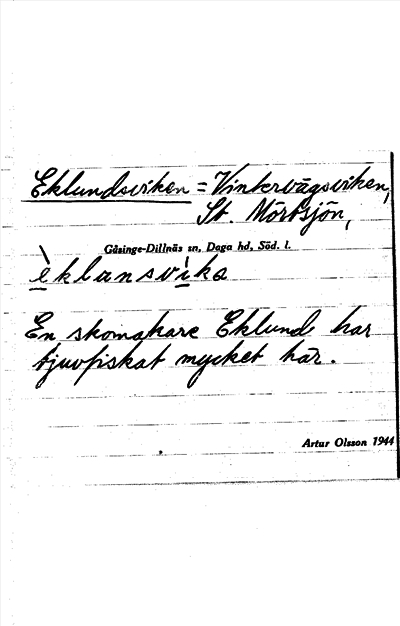 Eklundsviken = Vintervägsviken,
St. Mörtsjön,
Gåsinge-Dillnäs sn, Daga hd, Söd. l.
èklansvìka
En skomakare Eklund har
tjuvfiskat mycket här.
Artur Olsson 1944